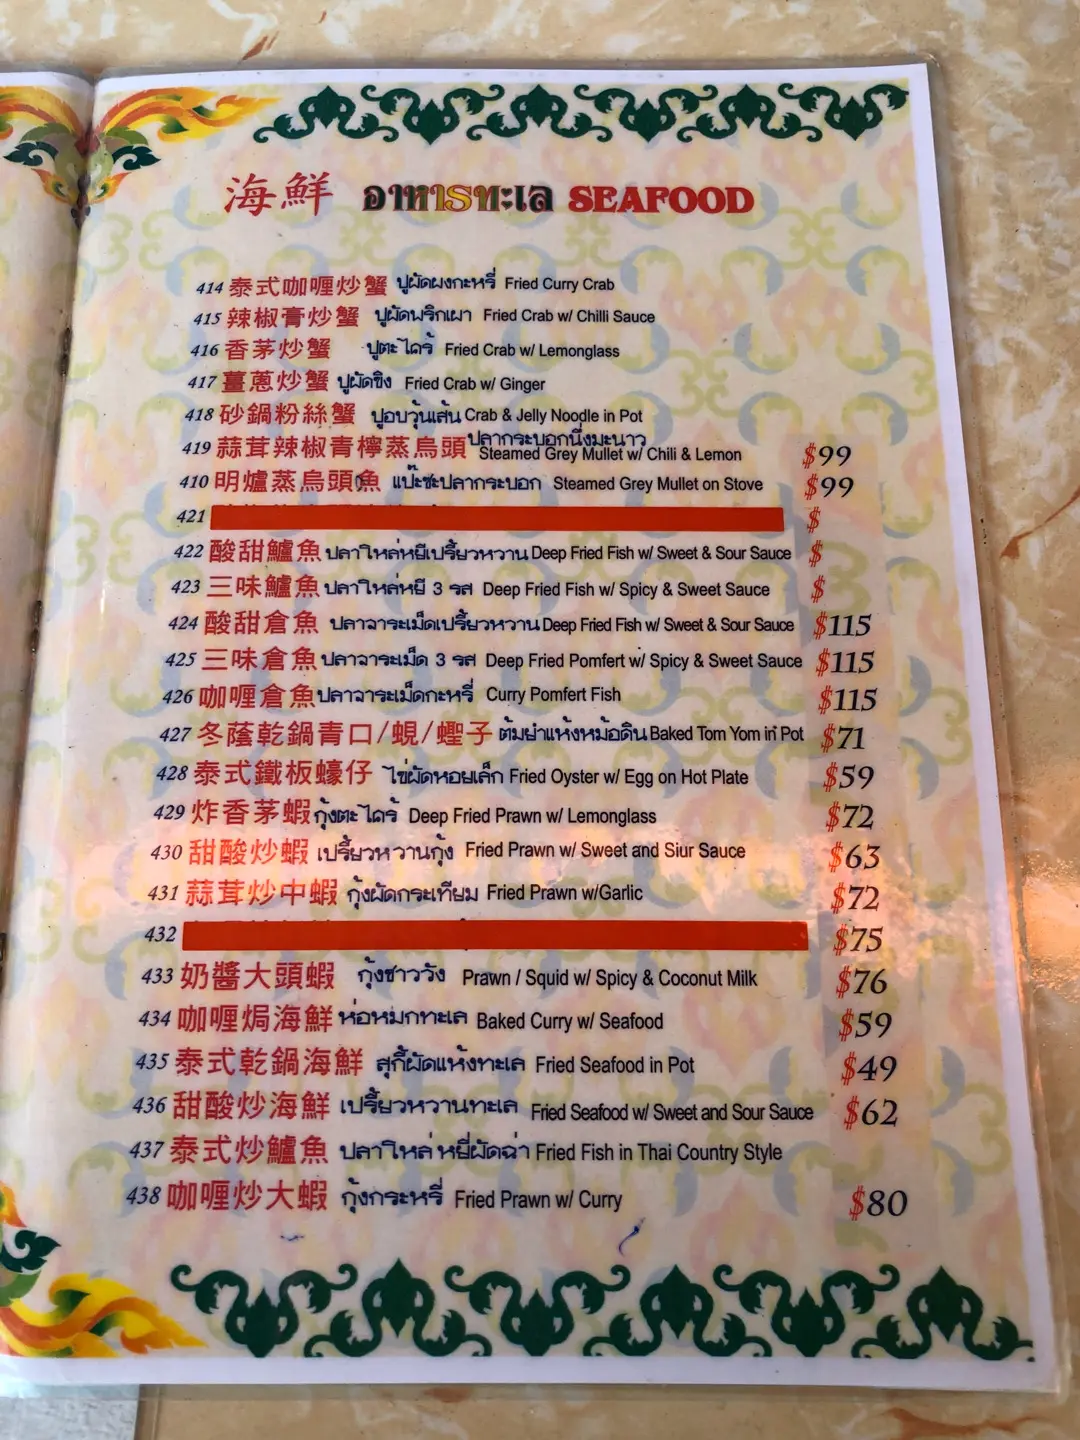 海鮮 อาหารทะเล SEAFOOD
414 泰式咖喱炒蟹 ปูผัดผงกะหรี่ Fried Curry Crab
415 辣椒膏炒蟹 ปูผัดพริกเผา Fried Crab w/ Chilli Sauce
416 香茅炒蟹 ปูตะไคร้ Fried Crab w/ Lemonglass
417 薑蔥炒蟹 ปูผัดขิง Fried Crab w/ Ginger
418 砂鍋粉絲蟹 ปูอบวุ้นเส้น Crab & Jelly Noodle in Pot
419 蒜茸辣椒青檸蒸烏頭 ปลากระบอกนึ่งมะนาว Steamed Grey Mullet w/ Chili & Lemon $99
410 明爐蒸烏頭魚 แป๊ะซะปลากระบอก Steamed Grey Mullet on Stove $99
421 $
422 酸甜鱸魚 ปลาใหล่หยีเปรี้ยวหวาน Deep Fried Fish w/ Sweet & Sour Sauce $
423 三味鱸魚 ปลาใหล่หยี 3 รส Deep Fried Fish w/ Spicy & Sweet Sauce $
424 酸甜倉魚 ปลาจาระเม็ดเปรี้ยวหวาน Deep Fried Fish w/ Sweet & Sour Sauce $115
425 三味倉魚 ปลาจาระเม็ด 3 รส Deep Fried Pomfert w/ Spicy & Sweet Sauce $115
426 咖喱倉魚 ปลาจาระเม็ดกะหรี่ Curry Pomfert Fish $115
427 冬蔭乾鍋青口/蜆/蟶子 ต้มยำแห้งหม้อดิน Baked Tom Yom in Pot $71
428 泰式鐵板蠔仔 ไข่ผัดหอยเล็ก Fried Oyster w/ Egg on Hot Plate $59
429 炸香茅蝦 กุ้งตะไคร้ Deep Fried Prawn w/ Lemonglass $72
430 甜酸炒蝦 เปรี้ยวหวานกุ้ง Fried Prawn w/ Sweet and Siur Sauce $63
431 蒜茸炒中蝦 กุ้งผัดกระเทียม Fried Prawn w/Garlic $72
432 $75
433 奶醬大頭蝦 กุ้งชาววัง Prawn / Squid w/ Spicy & Coconut Milk $76
434 咖喱焗海鮮 ห่อหมกทะเล Baked Curry w/ Seafood $59
435 泰式乾鍋海鮮 สุกี้ผัดแห้งทะเล Fried Seafood in Pot $49
436 甜酸炒海鮮 เปรี้ยวหวานทะเล Fried Seafood w/ Sweet and Sour Sauce $62
437 泰式炒鱸魚 ปลาใหล่หยี่ผัดฉ่า Fried Fish in Thai Country Style
438 咖喱炒大蝦 กุ้งกระหรี่ Fried Prawn w/ Curry $80